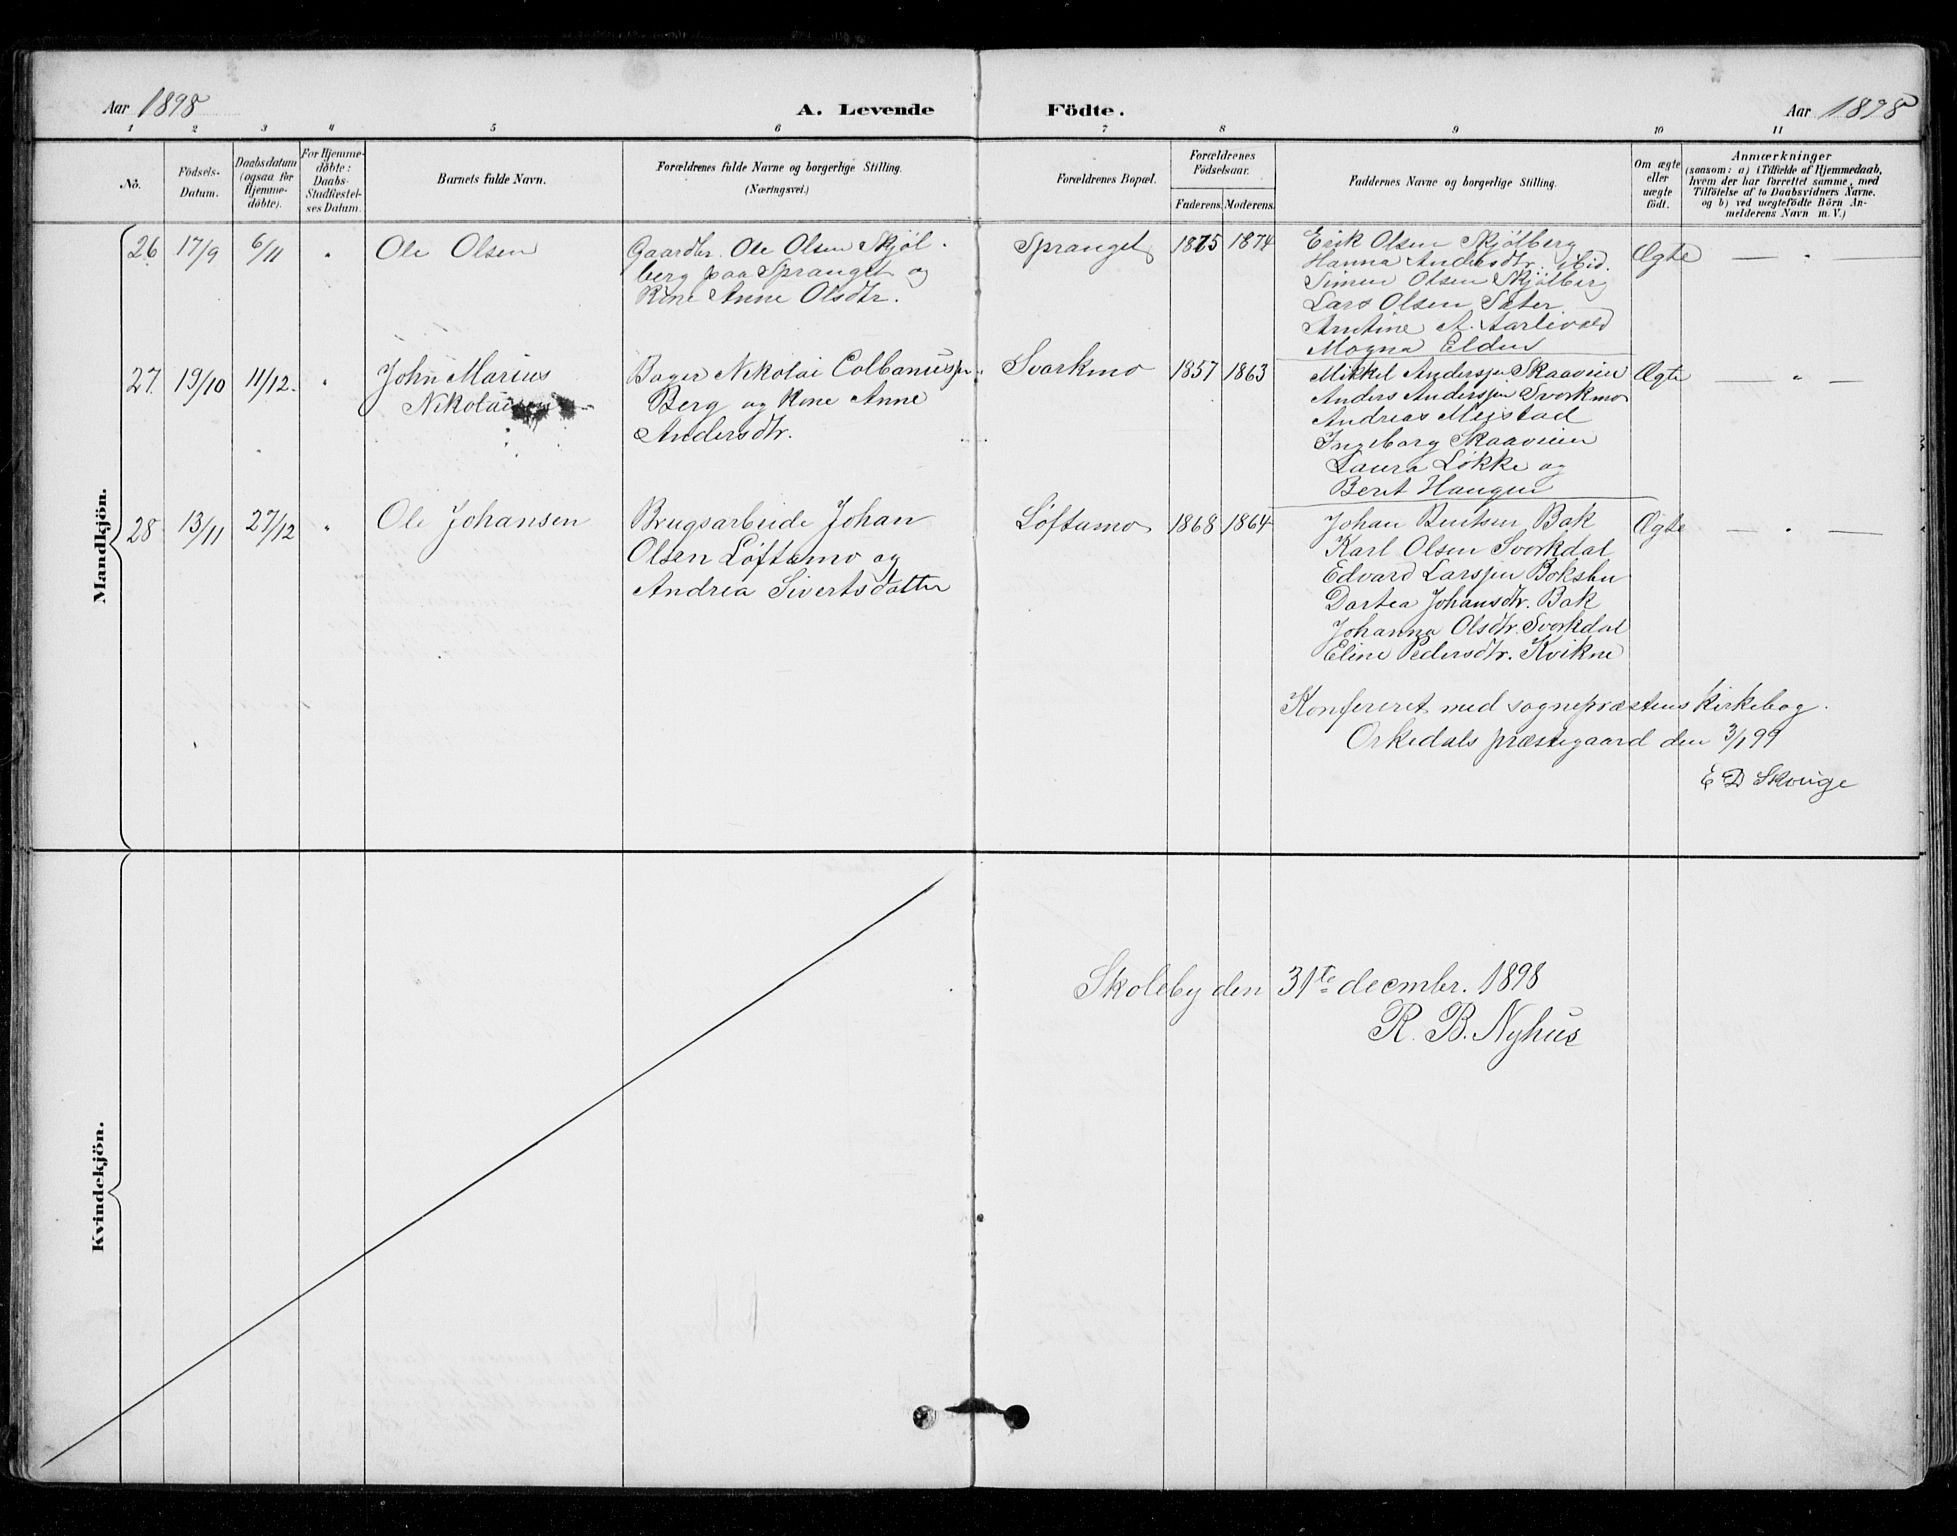 Aar 1898
A. Levende Födte.
Aar 1898
1 2 3 4 5 6 7 8 9 10 11
No.
Födsels-
Datum.
Daabsdatum
(ogsaa for
Hjemme-
döbte).
For Hjemme-
döbte:
Daabs-
Stadfæstel-
ses Datum.
Barnets fulde Navn.
Forældrenes fulde Navne og borgerlige Stilling.
(Næringsvei.)
Forældrenes Bopæl.
Forældrenes
Födselsaar.
Faderens. Moderens.
Faddernes Navne og borgerlige Stilling.
Om ægte
eller
uægte
födt.
Anmærkninger
(saasom: a) i Tilfælde af Hjemmedaab,
hvem der har forrettet samme, med
Tilföielse af to Daabsvidners Navne,
og b) ved uægtefödte Börn An-
melderens Navn m. V.)
Mandkjön.
26 17/9 6/11 "
Ole Olsen
Gaardbr. Ole Olsen Skjöl-
berg paa Spranget og
Kone Anne Olsdtr.
Spranget
1875 1874
Erik Olsen Skjölberg
Hanna Andersdtr. ibid.
Simen Olsen Skjölberg
Lars Olsen Sæter
Antine A. Aarlivold
Magna Elden
Ægte
— " —
27. 19/10 11/12. "
John Marius
Nikolaisen
Bager Nikolai Colbanussen
Berg og Kone Anne
Andersdtr.
Svorkmo
1857 1863
Mikkel Anderssen Skaavien
Anders Anderssen Svorkmo
Andreas Mejstad
Ingeborg Skaavien
Laura Løkke og
Beret Haugen
Ægte
— " —
28 13/11 27/12 "
Ole Johansen
Brugsarbeide Johan
Olsen Løftamo og
Andrea Sivertsdatter
Løftamo
1868 1864
Johan Bentsen Bak
Karl Olsen Svorkdal
Edvard Larssen Boksbu
Dortea Johansdtr. Bak
Johanna Olsdtr. Svorkdal
Eline Pedersdtr. Kvikne
Ægte
— " —
Konfereret med sognepræstens kirkebog.
Orkedals præstegaard den 3/1 99
E D Skouge
Kvindekjön.
Skoleby den 31te decmbr. 1898
R. B. Nyhus